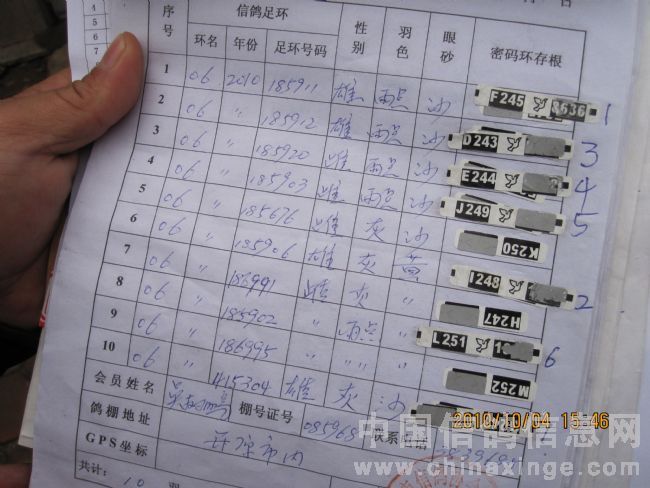 4
5
6
7
序号 信鸽足环 性别 羽色 眼砂 密码环存根
环名 年份 足环号码
1 06 2010 185911 雄 雨点 沙 F245 3636 1
2 06 〃 185912 雄 雨点 沙 D243 3
3 06 〃 185920 雌 雨点 沙 E244 4
4 06 〃 185903 雌 雨点 沙 J249 5
5 06 〃 185676 雌 灰 沙 K250
6 06 〃 185906 雄 灰 黄 I248 2
7 06 〃 186991 雌 灰 〃 H247
8 06 〃 185902 〃 雨点 〃 L251 6
9 06 〃 186995 〃 〃 〃 M252
10 06 〃 415304 雄 灰 沙
会员姓名 棚号证号 085968 联系电话
鸽棚地址 市内
GPS坐标
共计: 10 羽
2010/10/04 15:46
中国信鸽信息网
www.chinaxinge.com